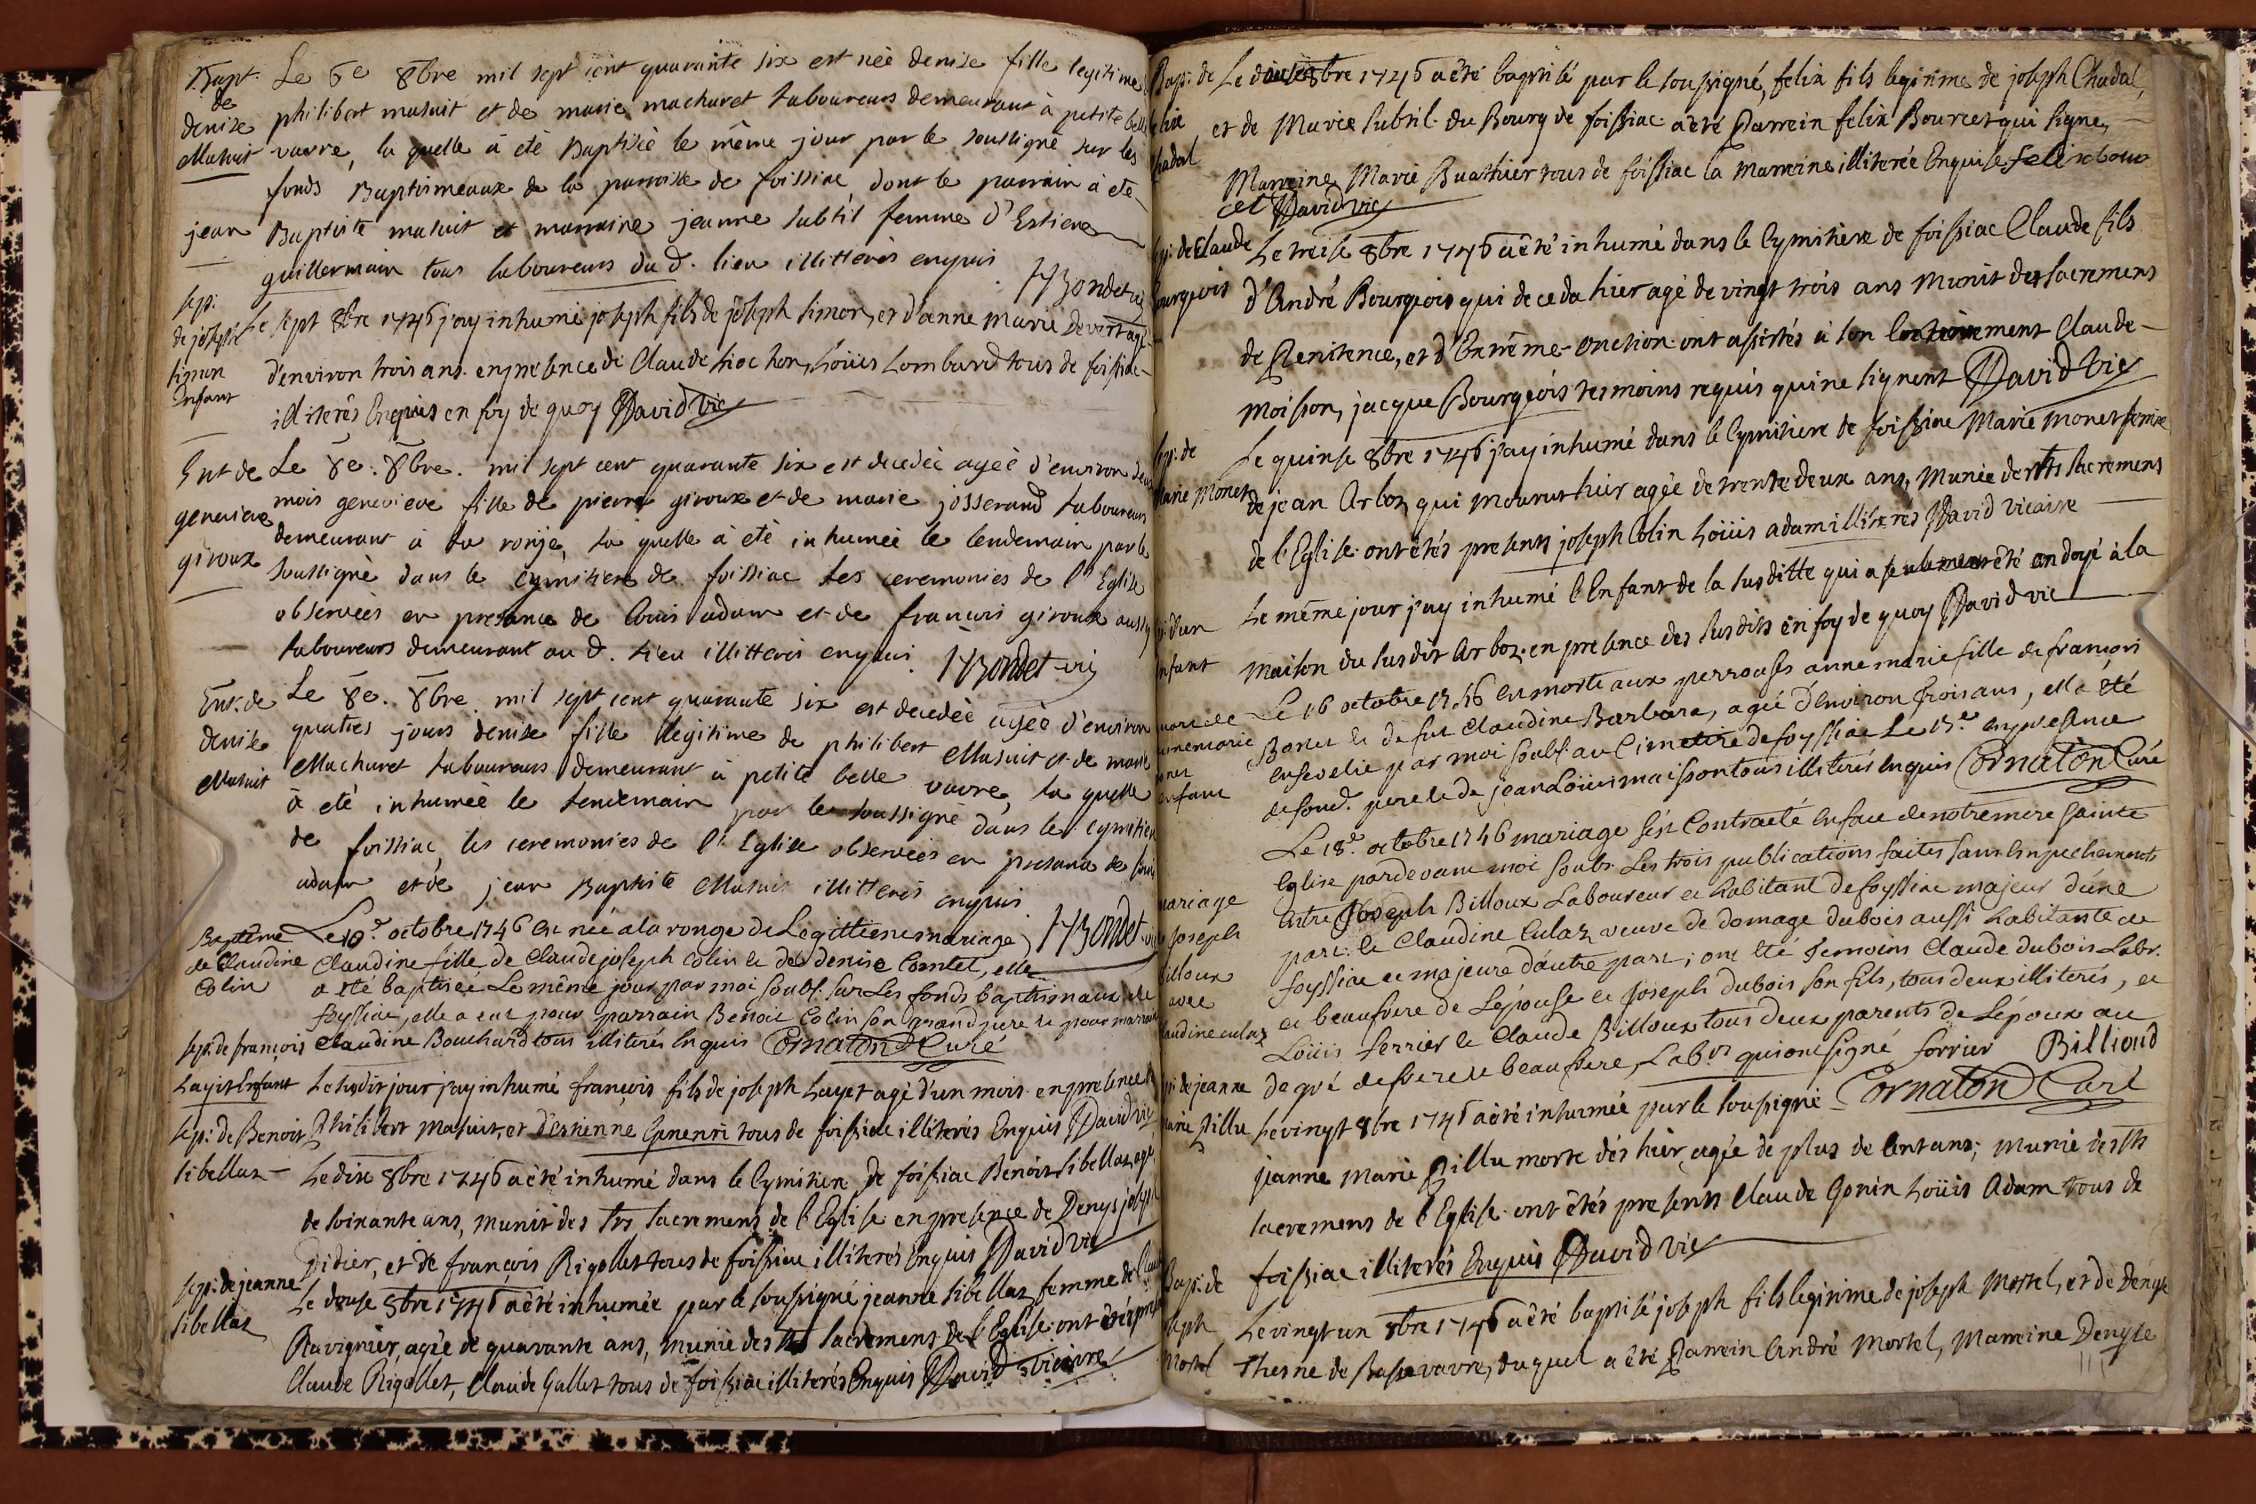 Bapt.
de
denise
Matuit
Le 6e 8bre mil sept cent quarante six est née denise fille legitime
philibert matuit et de marie machuret laboureurs demeurant à petite belle
vavre, la quelle à été Baptisée le même jour par le soussigné sur les
fonds Baptismeaux de la parroisse de foissiac dont le parrain à eté
jean Baptiste matuit et marraine jeanne subtil femme d'Estiene
guillermain tous laboureurs du d. lieu illitterés enquis HBondet vic
sep:
de joseph
simon
Enfant
Le sept 8bre 1746 j'ay inhumé joseph fils de joseph simon, et d'anne marie
d'environ trois ans. en presence de Claude hochon, Loüis Lombard tous de foissiac
illiterés Enquis en foy de quoy David vic
Ent de
genevieve
giroux
Le 8e. 8bre. mil sept cent quarante six est decedeé ageé d'environ deux
mois genevieve fille de pierre giroux et de marie josserand laboureurs
demeurant à la ronje, la quelle à été inhumeé le lendemain par le
soussigné dans le cymitiere de foissiac les ceremonies de l'Eglise
observeés en presance de louis adam et de francois giroux aussy
laboureurs demeurant au d. lieu illitterés enquis. HBondet vic
Ent: de
denise
Matuit
Le 8e. 8bre. mil sept cent quarante six est decedeé ageé d'environ
quattes jours denise fille legitime de philibert Matuit et de marie
Machuret laboureurs demeurant à petite belle vavre, la quelle
à eté inhumeé le lendemain par le soussigné dans le cymitiere
de foissiac, les ceremonies de l'Eglise observeés en presance de louis
adam et de jean Baptiste Matuit illitterés enquis HBondet vic
Baptême
de Claudine
Colin
Le 10e. octobre 1746 est née a la ronge de Legittime mariage
Claudine fille de Claude joseph Colin et de denise Comtet, elle
a eté baptisée Le même jour par moi soubs. sur Les fonds baptismaux de
foyssiac, elle a eut pour parrain Benoit Colin son grand pere et pour marraine
Claudine Bouchard tous illiterés Enquis Cornaton Curé
sep: de françois
Layet Enfant
Le susdit jour j'ay inhumé françois fils de joseph Layet agé d'un mois. en presence de
Philibert Matuit, et d'estienne tous de foissiac illiterés Enquis David vic
sep: de Benoit
sibellas
Le dix 8bre 1746 a été inhumé dans le Cymitiere de foissiac Benoit sibellas agé
de soixante ans, munit des sacremens de l'Eglise en presence de Denys joseph
Didier, et de françois Rigollet tous de foissiac illiterés Enquis David vic
sep: de jeanne
sibellas
Le douse 8bre 1746 a été inhumée par le soussigné jeanne sibellas femme de Claude
Ravignier, agée de quarante ans, munie des sacremens de l'Eglise. ont étés
Claude Rigollet, Claude Gallet tous de foissiac illiterés Enquis David vicaire
Bap: de
felix
Chadal
Le douse 8bre 1746 a été baptisé par le soussigné, felix fils legitime de joseph Chadal,
et de Marie subtil. du Bourg de foissiac. a été Parrein felix Bourcet qui signe,
Marreine Marie Buathier tous de foissiac la Marreine illiterée Enquise felix bour
cet David vic
sep: de Claude
Bourgeois
Le treise 8bre 1746 a été inhumé dans le Cymitiere de foissiac Claude fils
d'André Bourgeois qui deceda hier agé de vingt trois ans Munit des sacremens
de Penitence, et d'Extrême-onction. ont assistés à son Enterrement Claude
Moisson, jacque Bourgeois tesmoins requis qui ne signent David vic
sep: de
Marie Monet
Le quinse 8bre 1746 j'ay inhumé dans le Cymitiere de foissiac Marie Monet femme
de jean Arboz, qui mourut hier agée de trente deux ans, Munie des sacremens
de l'Eglise. ont étés presents joseph Colin Loüis adam illiterés David vicaire
sep: d'un
enfant
Le même jour j'ay inhumé l'Enfant de la susditte qui a seulement été ondoyé à la
maison du susdit Arboz. en presence des susdits en foy de quoy David vic
mort de
annemarie
enfant
Le 16 octobre 1746 est morte aux perrouses anne marie fille de françois
et de fut Claudine Barbara, ageé d'environ trois ans, et a été
ensevelie par moi soubs. au Cimetire de foyssiac Le 17e. en presence
de son d. pere et de jean Loüis maisson tous illiterés Enquis Cornaton Curé
mariage
de joseph
Billoux
avec
Claudine Culaz
Le 18e. octobre 1746 mariage s'est Contracté en face de notre mere sainte
Eglise pardevant moi soubs. Les trois publications faites sans Empechements
Entre Joseph Billoux Laboureur et habitant de foyssiac majeur d'une
part. et Claudine Culaz veuve de domage dubois aussi habitante de
foyssiac et majeure d'autre part; ont eté temoins Claude dubois Labr.
et beaufrere de Lépouse et joseph dubois son fils, tous deux illiterés, et
Loüis ferrier et Claude Billoux tous deux parents de Lépoux au
degré de frere et beaufrere, Labrs qui ont signé ferrier Billioud
Cornaton Curé
sep: de jeanne
marie Pillu
Le vingt 8bre 1746 a été inhumée par le soussigné
jeanne Marie Pillu morte dés hier, agée de plus de Cent ans; munie des
sacremens de l'Eglise. ont étés presents Claude Gonin Loüis Adam tous de
foissiac illiterés Enquis David vic
Bap: de
joseph
Mortel
Le vingt un 8bre 1746 a été baptisé joseph fils legitime de joseph Mortel, et de Denyse
Thesne de Basse vavre, duquel a été Parrein André Mortel, Marreine Denyse